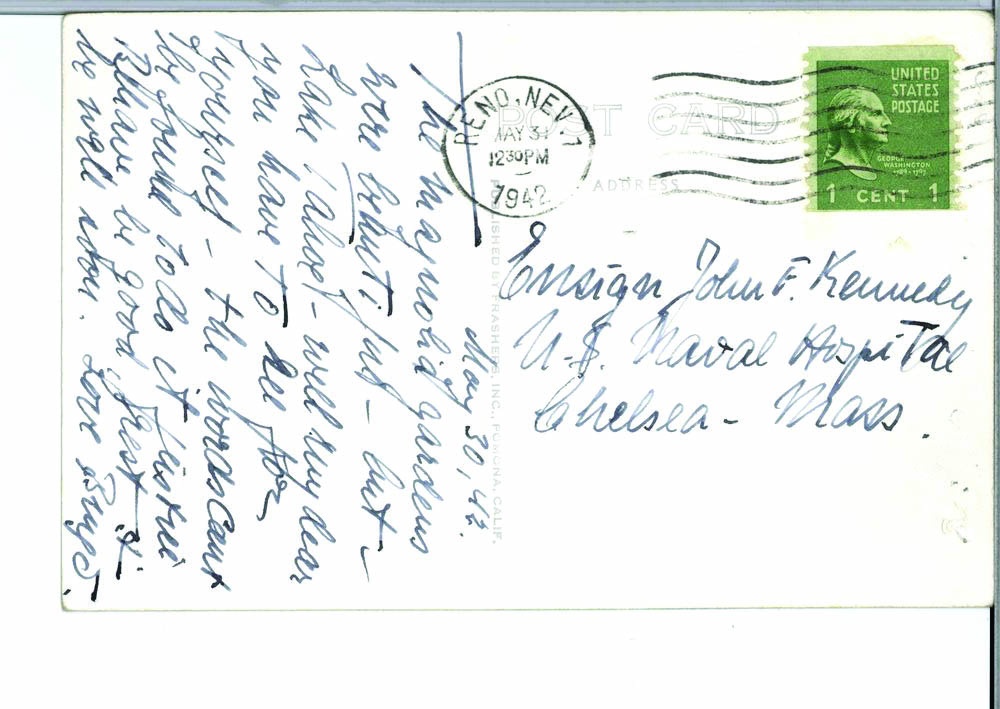 May 30, 42.
The magnolia gardens
were beautiful - but -
Lake Tahoe - well my dear
you have to see for
yourself - the words cant
be found to do it justice
Behave, be good, rest &
be well soon. Love
RENO, NEV. 1
MAY 31
12 30 PM
1942
POST CARD
ADDRESS
PUBLISHED BY FRASHERS, INC., POMONA, CALIF.
UNITED
STATES
POSTAGE
GEORGE
WASHINGTON
1789-1797
1 CENT 1
Ensign John F. Kennedy
U.S. Naval Hospital
Chelsea - Mass.